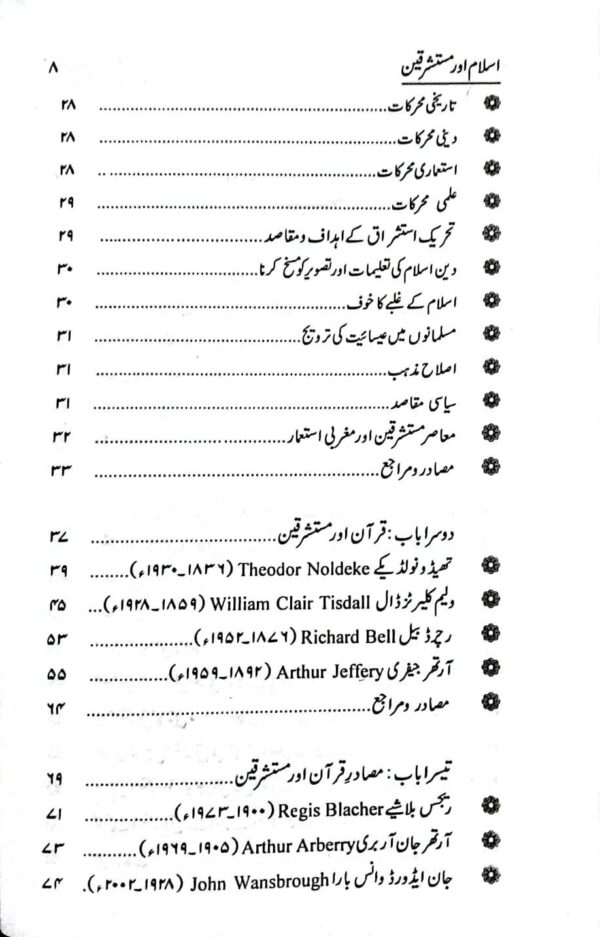 اسلام اور مستشرقین ۸
تاریخی محرکات ۲۸
دینی محرکات ۲۸
استعماری محرکات ۲۸
علمی محرکات ۲۹
تحریک استشراق کے اہداف و مقاصد ۲۹
دین اسلام کی تعلیمات اور تصویر کو مسخ کرنا ۳۰
اسلام کے غلبے کا خوف ۳۰
مسلمانوں میں عیسائیت کی ترویج ۳۱
اصلاح مذہب ۳۱
سیاسی مقاصد ۳۱
معاصر مستشرقین اور مغربی استعمار ۳۲
مصادر و مراجع ۳۳
دوسرا باب: قرآن اور مستشرقین ۳۷
تھیڈو نولڈیکے Theodor Noldeke (۱۸۳۶۔۱۹۳۰ء) ۳۹
ولیم کلیر ٹزڈال William Clair Tisdall (۱۸۵۹۔۱۹۲۸ء) ۴۵
رچرڈ بیل Richard Bell (۱۸۷۶۔۱۹۵۲ء) ۵۳
آرتھر جیفری Arthur Jeffery (۱۸۹۲۔۱۹۵۹ء) ۵۵
مصادر و مراجع ۶۴
تیسرا باب: مصادرِ قرآن اور مستشرقین ۶۹
ریجس بلاشے Regis Blacher (۱۹۰۰۔۱۹۷۳ء) ۷۱
آرتھر جان آربری Arthur Arberry (۱۹۰۵۔۱۹۶۹ء) ۷۳
جان ایڈورڈ وانس بارا John Wansbrough (۱۹۲۸۔۲۰۰۲ء) ۷۴